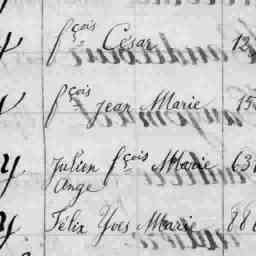 fçois César 12
fçois Jean Marie 15
y Julien fçois Marie 63
Ange
y Félix Yves Marie 88